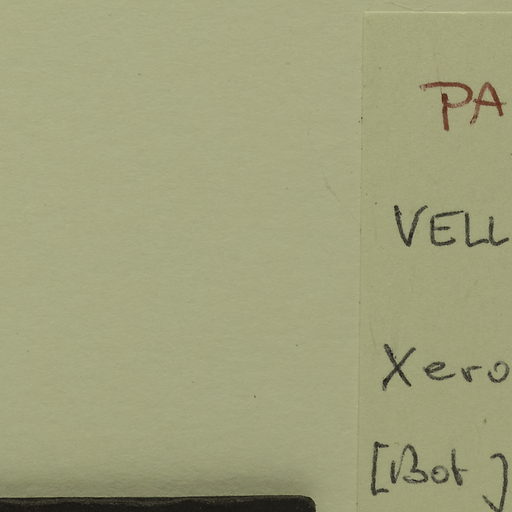 PA
VELL
Xero
[Bot J